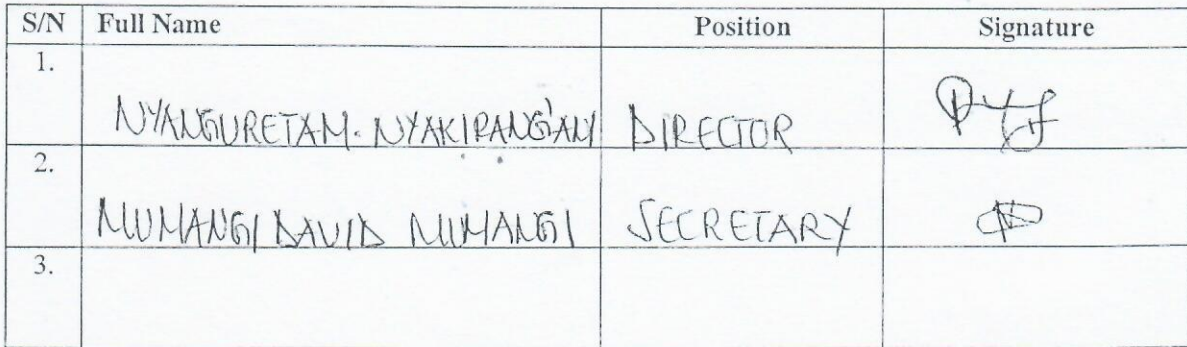 S/N Full Name Position Signature
1.
NYANGURETA M. NYAKIRANG'ANY DIRECTOR
2.
MUMANGI DAVID MUMANGI SECRETARY
3.